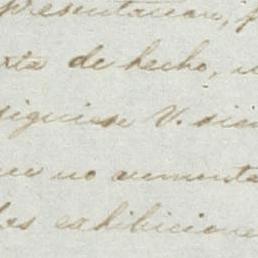 presentacion, p
xta de hecho, n
siguiese V. sien
no aumenta
las exhibicione